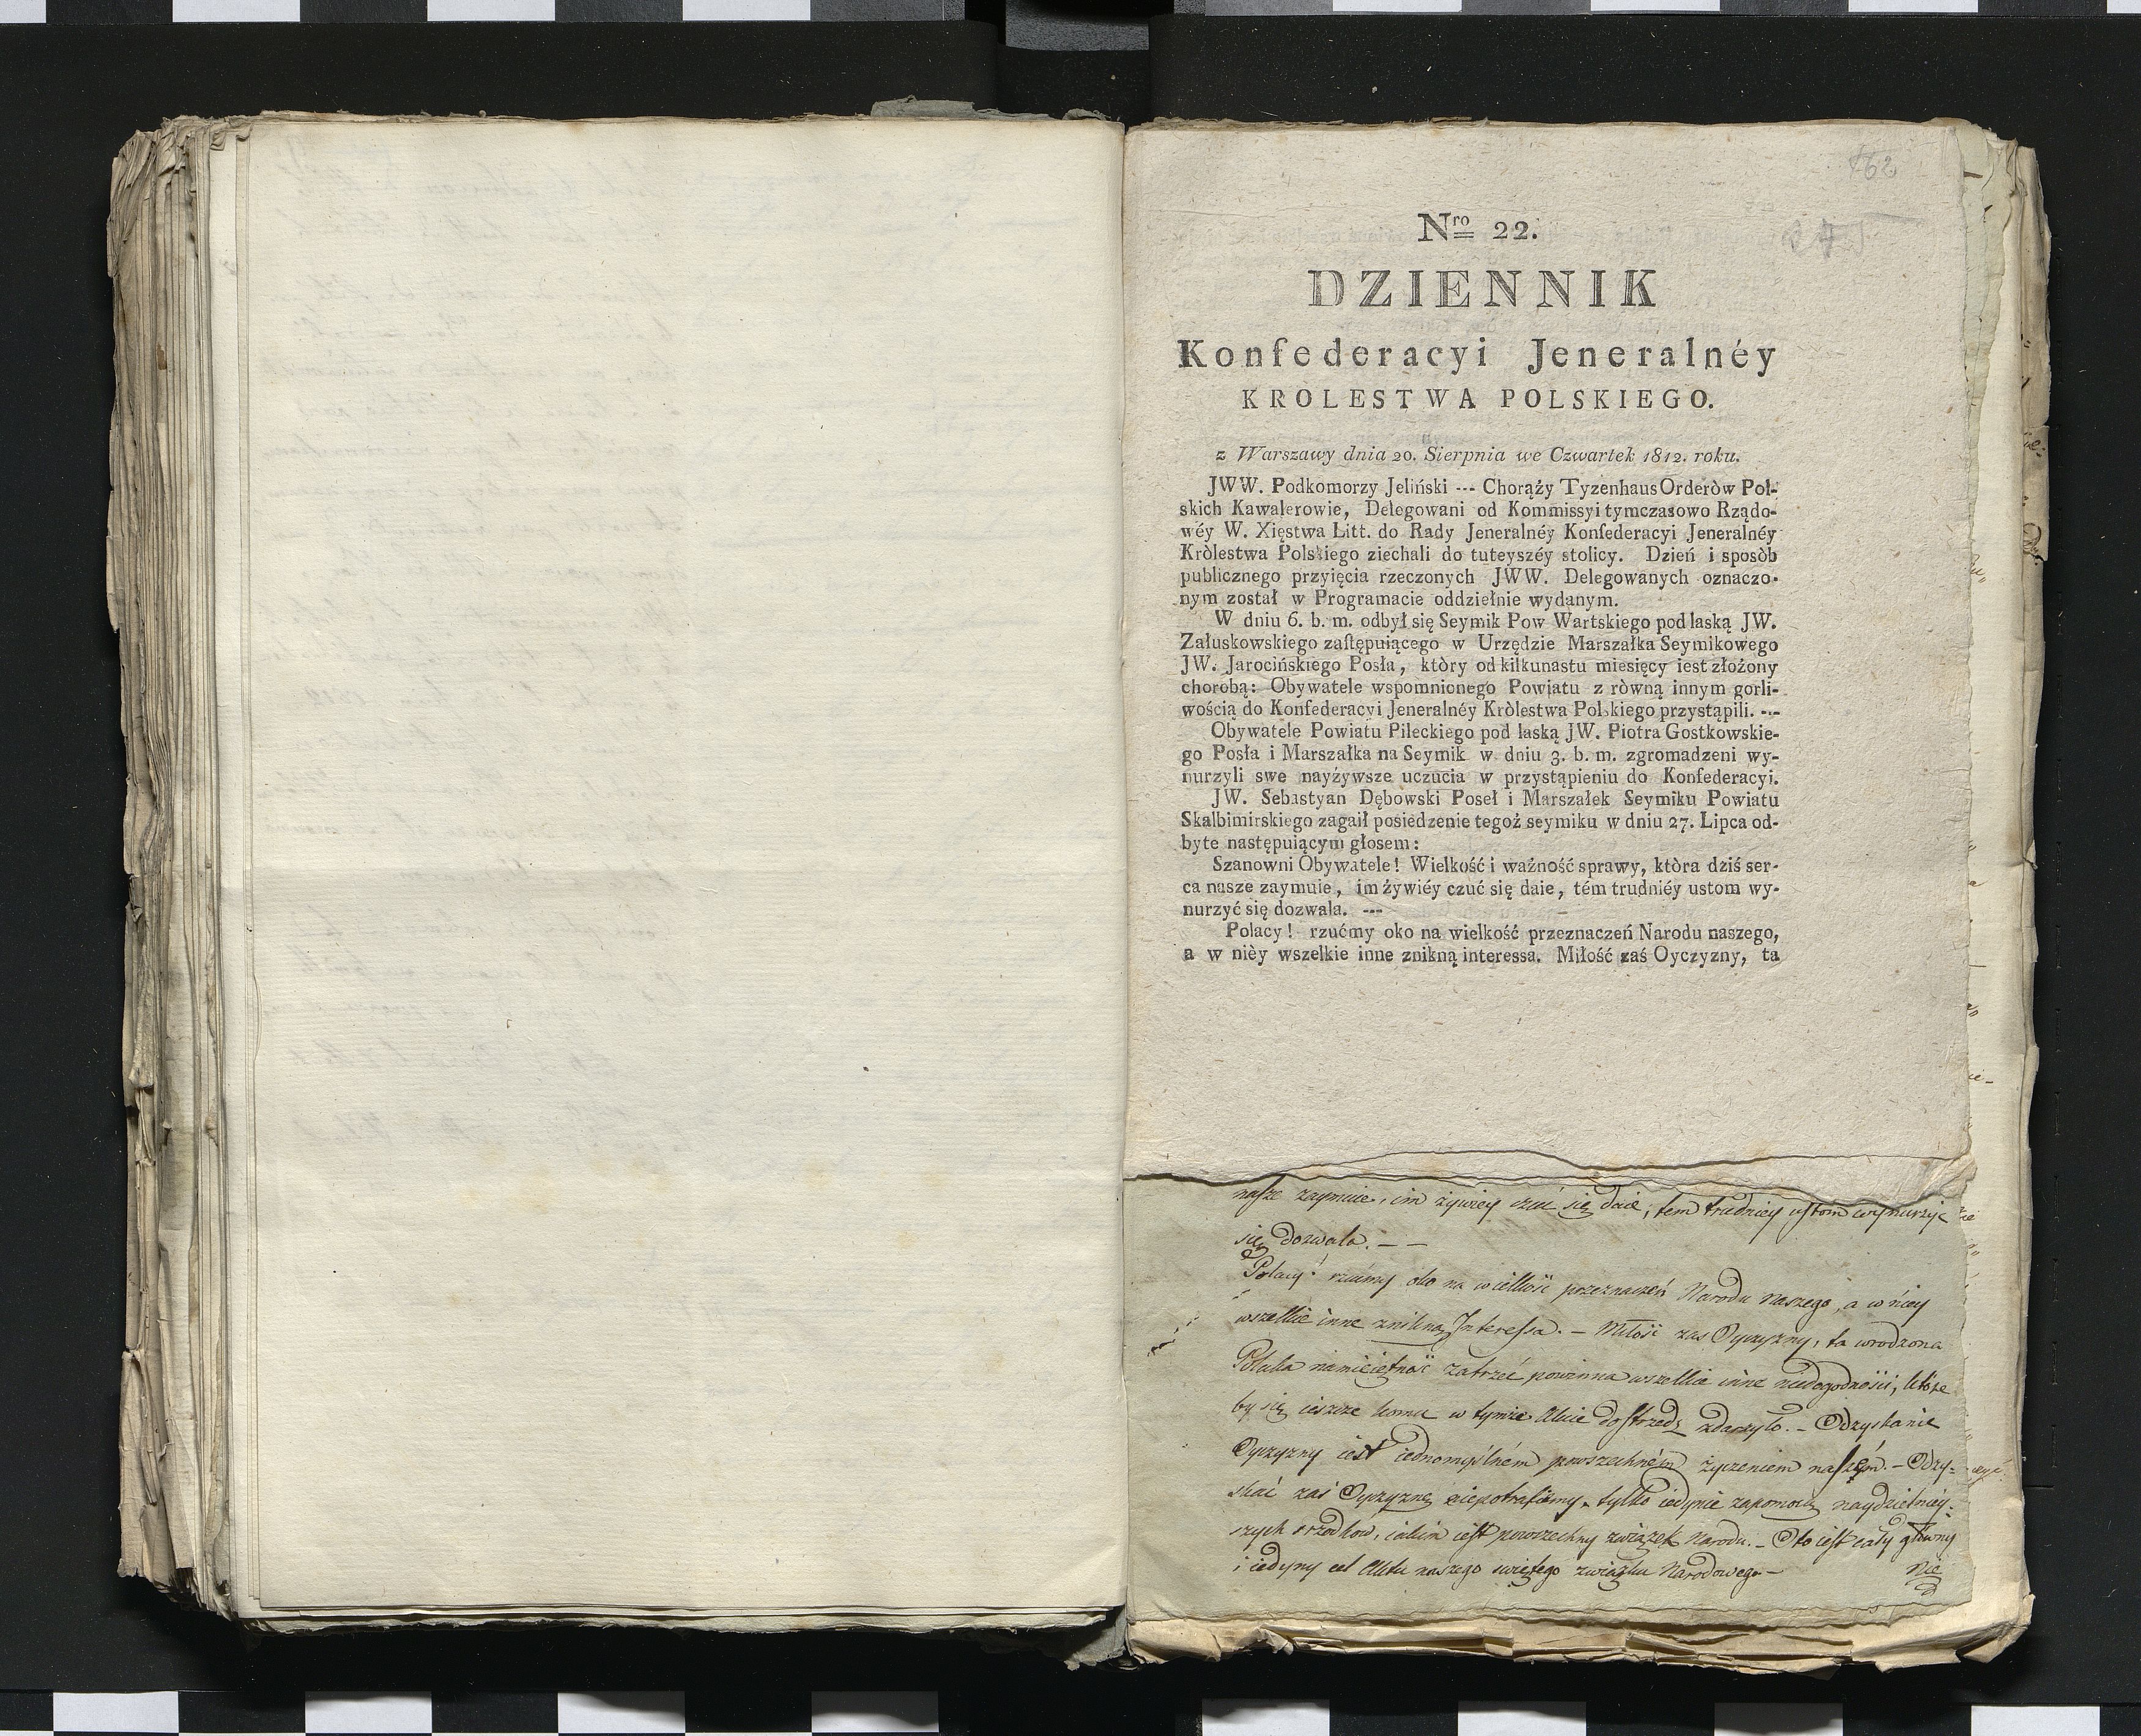 162
Nro 22.
DZIENNIK
Konfederacyi Jeneralnéy
KROLESTWA POLSKIEGO.
z Warszawy dnia 20. Sierpnia we Czwartek 1812. roku.
JWW. Podkomorzy Jeliński --- Chorąży Tyzenhaus Orderòw Pol-
skich Kawalerowie, Delegowani od Kommissyi tymczasowo Rządo-
wéy W. Xięstwa Litt. do Rady Jeneralnéy Konfederacyi Jeneralnéy
Kròlestwa Polskiego ziechali do tuteyszéy stolicy. Dzień i sposòb
publicznego przyięcia rzeczonych JWW. Delegowanych oznaczo-
nym został w Programacie oddzielnie wydanym.
W dniu 6. b. m. odbył się Seymik Pow Wartskiego pod laską JW.
Załuskowskiego zastępuiącego w Urzędzie Marszałka Seymikowego
JW. Jarocińskiego Posła, ktòry od kilkunastu miesięcy iest złożony
chorobą: Obywatele wspomnionego Powiatu z ròwną innym gorli-
wością do Konfederacyi Jeneralnéy Kròlestwa Polskiego przystąpili. ---
Obywatele Powiatu Pileckiego pod laską JW. Piotra Gostkowskie-
go Posła i Marszałka na Seymik w dniu 3. b. m. zgromadzeni wy-
nurzyli swe nayżywsze uczucia w przystąpieniu do Konfederacyi.
JW. Sebastyan Dębowski Poseł i Marszałek Seymiku Powiatu
Skalbimirskiego zagaił posiedzenie tegoż seymiku w dniu 27. Lipca od-
byte następuiącym głosem:
Szanowni Obywatele! Wielkość i ważność sprawy, ktòra dziś ser-
ca nasze zaymuie, im żywiéy czuć się daie, tém trudniéy ustom wy-
nurzyć się dozwala. ---
Polacy! rzućmy oko na wielkość przeznaczeń Narodu naszego,
a w nièy wszelkie inne znikną interessa. Miłość zaś Oyczyzny, ta
nasze zaymuie, im żywiey czuć się daie, tem trudniey ustom wynurzyć
się dozwala. — —
Polacy! rzućmy oko na wielkość przeznaczeń Narodu naszego, a w niey
wszelkie inne znikną Interessa. — Miłość zas Oyczyzny, ta wrodzona
Polaka namiętność zatrzeć powinna wszelkie inne niedogodności, które
by się ieszcze komu w tymże Akcie dostrzedz zdarzyło. — Odzyskanie
Oyczyzny iest iednomyślném powszechném życzeniem naszém. — Odzy-
skać zaś Oyczyznę niepotrafiemy, tylko iedynie zapomocą naydzielniéy-
szych srzodkow, iakim iest powszechny związek Narodu. — Oto iest cały główny
i iedyny cel Aktu naszego swiętego związku Narodowego —
Nie